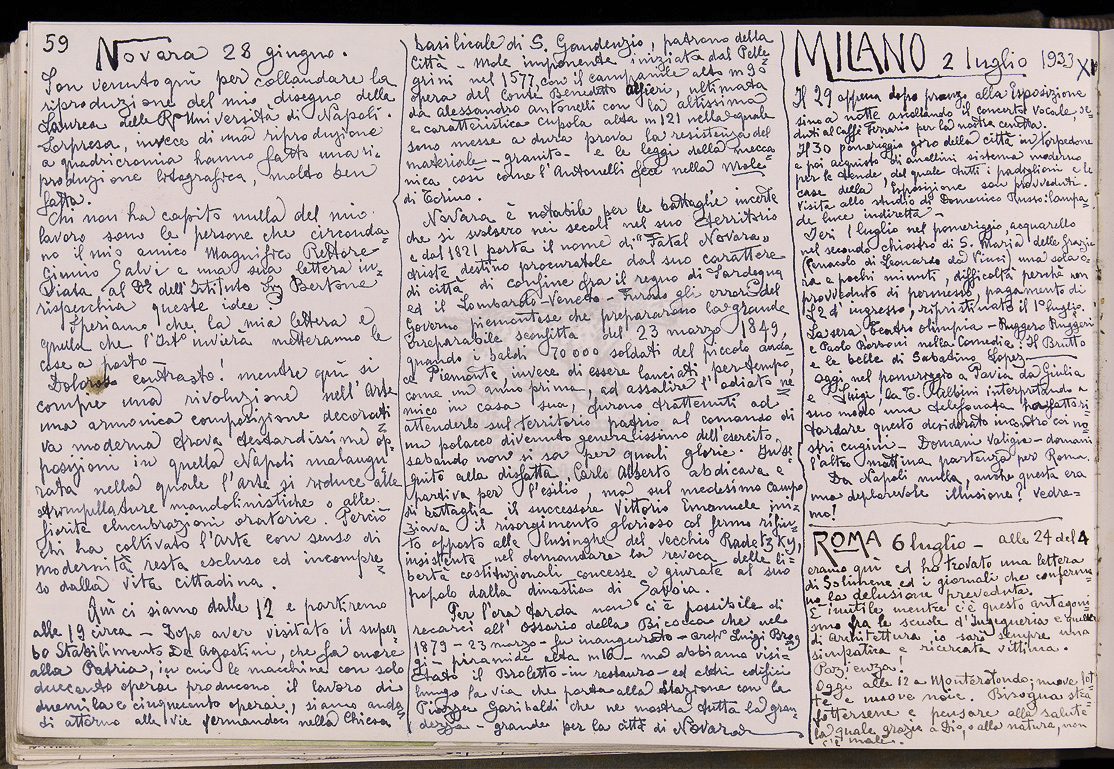 59
Novara 28 giugno.
Son venuto quì per collaudare la
riproduzione del mio disegno della
Laurea della R. Università di Napoli.
Sorpresa, invece di una riproduzione
a quadricromia hanno fatto una ri=
produzione litografica, molto ben
fatta.
Chi non ha capito nulla del mio
lavoro sono le persone che circonda=
no il mio amico Magnifico Rettore
Ginno Salvi e una sua lettera in=
viata al Dr dell'Istituto Bertone
rispecchia queste idee.
Speriamo che la mia lettera e
quella che l'Isto invierà metteranno le
cose a posto—
Doloroso contrasto! mentre quì si
compie una rivoluzione nell'Arte
una armonica composizione decorati=
va moderna trova testardissime op=
posizioni in quella Napoli malaugu=
rata nella quale l'Arte si riduce alle
strompellature mandolinistiche o alle
fiorite elucubrazioni oratorie. Perciò
chi ha coltivato l'Arte con senso di
modernità resta escluso ed incompre=
so dalla vita cittadina.
Quì ci siamo dalle 12 e partiremo
alle 19 circa — Dopo aver visitato il super=
bo Stabilimento De Agostini, che fa onore
alla Patria, in cui le macchine con solo
duecento operai producono il lavoro di
duemila e cinquecento operai, siamo anda=
ti attorno alle vie fermandoci nella Chiesa
basilicale di S. Gaudenzio, patrono della
Città — mole imponente iniziata dal Pelle=
grini nel 1577 con il campanile alto m 90
opera del Conte Benedetto Alfieri, ultimata
da Alessandro Antonelli con la altissima
e caratteristica cupola alta m 121 nella quale
sono messe a dura prova la resistenza del
materiale — granito — e le leggi della mecca
nica così come l'Antonelli fece nella Mole
di Torino.
Novara è notabile per le battaglie incerte
che si svolsero nei secoli nel suo territorio
e dal 1821 porta il nome di "Fatal Novara"
triste destino procuratole dal suo carattere
di città di confine fra il regno di Sardegna
ed il Lombardo-Veneto — Furono gli errori del
Governo piemontese che prepararono la grande
irreparabile sconfitta del 23 marzo 1849,
quando i baldi 70000 soldati del piccolo auda=
ce Piemonte invece di essere lanciati per tempo,
come un anno prima, ad assalire l'odiato ne=
mico in casa sua, furono trattenuti ad
attenderlo sul territorio patrio al comando di
un polacco divenuto generalissimo dell'esercito
sabaudo non si sa per quali glorie. In se=
guito alla disfatta Carlo Alberto abdicava e
partiva per l'esilio, ma sul medesimo campo
di battaglia il successore Vittorio Emanuele ini=
ziava il risorgimento glorioso col fermo rifiu=
to opposto alle lusinghe del vecchio Radetzky,
insistente nel domandare la revoca delle li=
bertà costituzionali concesse e giurate al suo
popolo dalla dinastia di Savoia.
Per l'ora tarda non ci è possibile di
recarci all'Ossario della Bicocca che nel
1879 — 23 marzo — fu inaugurato — archo Luigi Brog
gi — piramide alta m 16 — ma abbiamo visi=
tato il Broletto — in restauro — ed altri edifici
lungo la via che porta alla Stazione con la
Piazza Garibaldi che ne mostra tutta la gran=
dezza — grande per la città di Novara
MILANO 2 luglio 1933 XI
Il 29 appena dopo pranzo alla Esposizione
sino a notte ascoltando il concerto vocale, se=
duti al Caffè Ferrario per la nostra cenetta.
Il 30 pomeriggio giro della città in torpedone
e poi acquisto di anellini sistema moderno
per le tende, del quale tutti i padiglioni e le
case della Esposizione son provveduti.
Visita allo studio di Domenico Russo: lampa=
de luce indiretta —
Ieri 1 luglio nel pomeriggio, acquarello
nel secondo chiostro di S. Maria delle Grazie
(Cenacolo di Leonardo da Vinci) una sola o=
ra e pochi minuti, difficoltà perchè non
provveduto di permesso, pagamento di
£ 2 d'ingresso, ripristinato il 1° luglio.
La sera Teatro Olimpia — Ruggero Ruggeri
e Paolo Borboni nella Comedia: Il Brutto
e le belle di Sabatino Lopez —
Oggi nel pomeriggio a Pavia da Giulia
e Luigi, la T. Balbini interpretando a
suo modo una telefonata ha fatto ri=
tardare questo desiderato incontro coi no=
stri cugini — Domani valigie — domani
l'altro mattina partenza per Roma.
Da Napoli nulla, anche questa era
una deplorevole illusione? Vedre=
mo!
ROMA 6 luglio — alle 24 del 4
eravamo quì ed ho trovato una lettera
di Solimene ed i giornali che conferma=
no la delusione preveduta.
È inutile mentre c'è questo antagoni=
smo fra le scuole d'Ingegneria e quella
di Architettura io sarò sempre una
simpatica e ricercata vittima.
Pazienza!
Oggi alle 12 a Monterotondo; nuove lot=
te e nuove noie. Bisogna sta=
fottersene e pensare alla salute
la quale, grazie a Dio, o alla natura, non
c'è male.